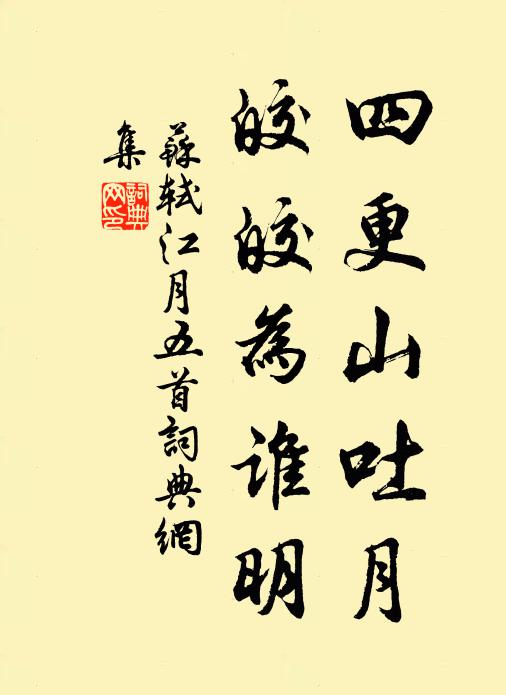 四更山吐月
皎皎為誰明
蘇軾江月五首詞典網
集
詞典
网印